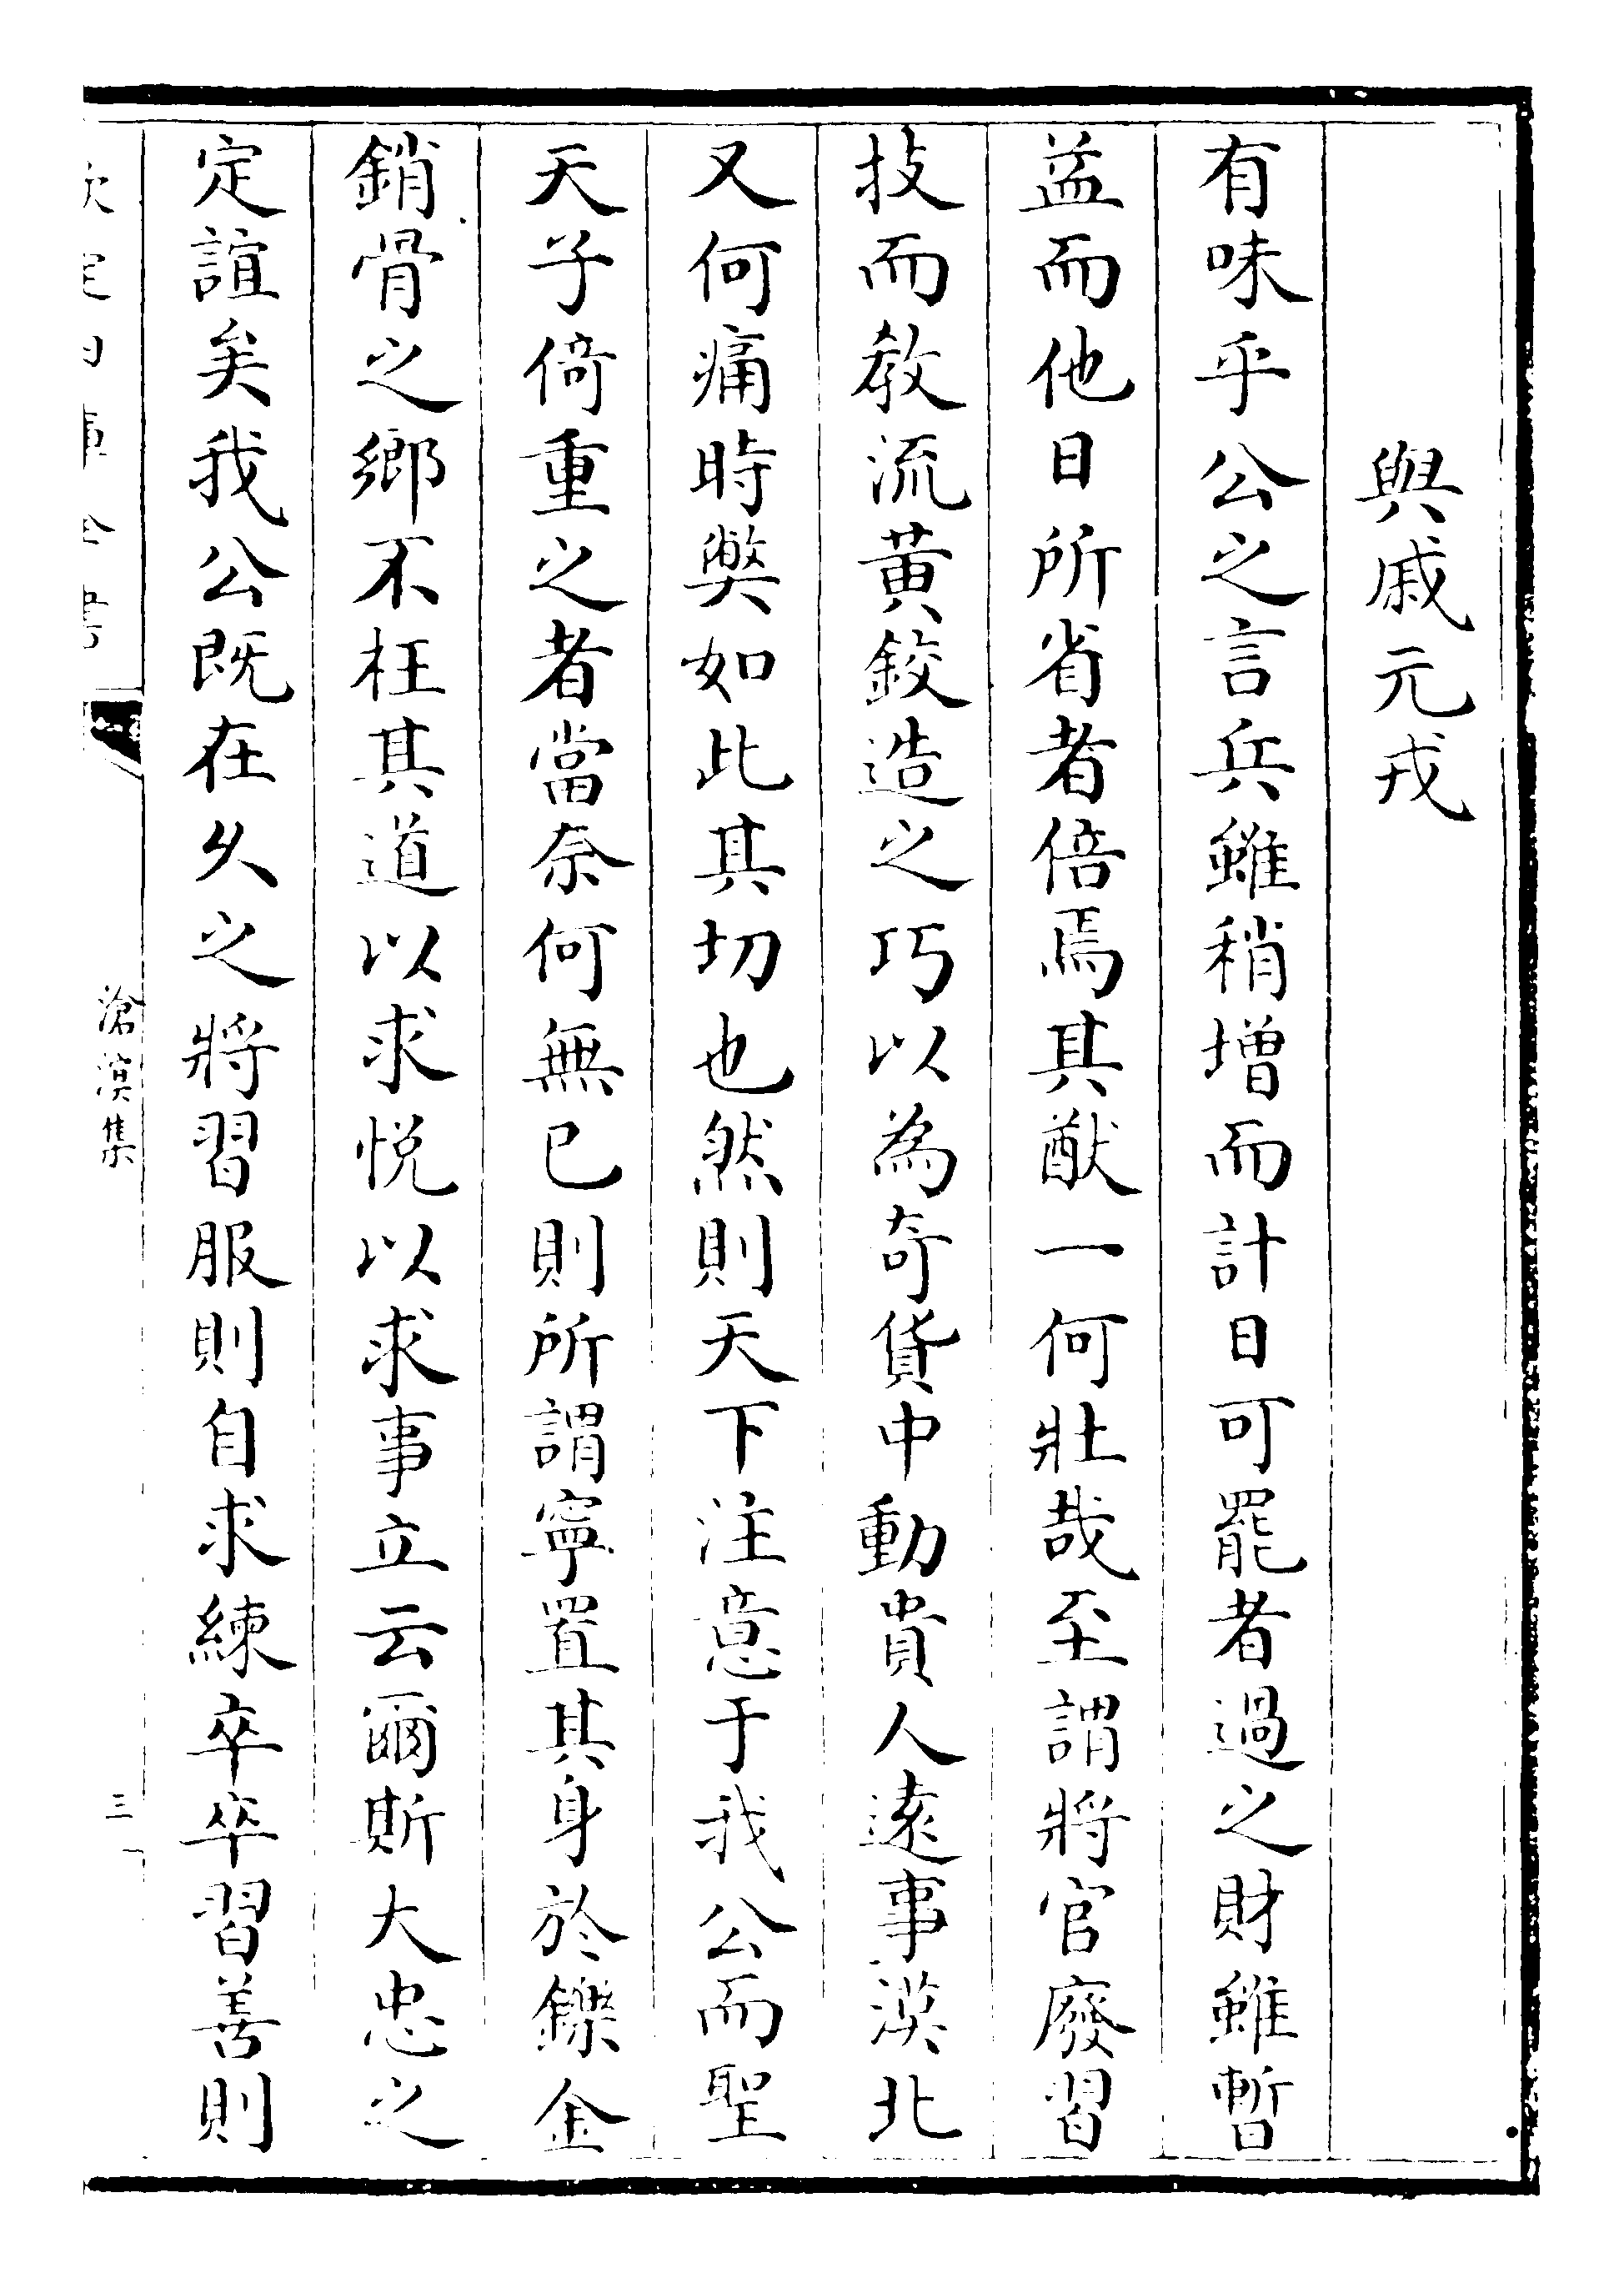 與戚元戎
有味乎公之言兵雖稍増而計日可罷者過之財雖暫
益而他日所省者倍焉其猷一何壯哉至謂將官廢習
技而教流黄鉸造之巧以為奇貨中動貴人遠事漠北
又何痛時獘如此其切也然則天下注意于我公而聖
天子倚重之者當奈何無已則所謂寧置其身於鑠金
銷骨之鄉不枉其道以求悦以求事立云爾斯大忠之
定誼矣我公既在久之將習服則自求練卒卒習善則
欽定四庫全書
滄溟集
三